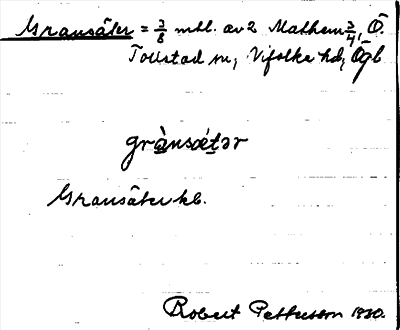 Gransäter = 3/8 mtl. av 2 Mathem 3/4, Ö.
Tollstad sn, Vifolka hd, Ögl
grànsætər
Gransäter kb.
Robert Pettersson 1930.